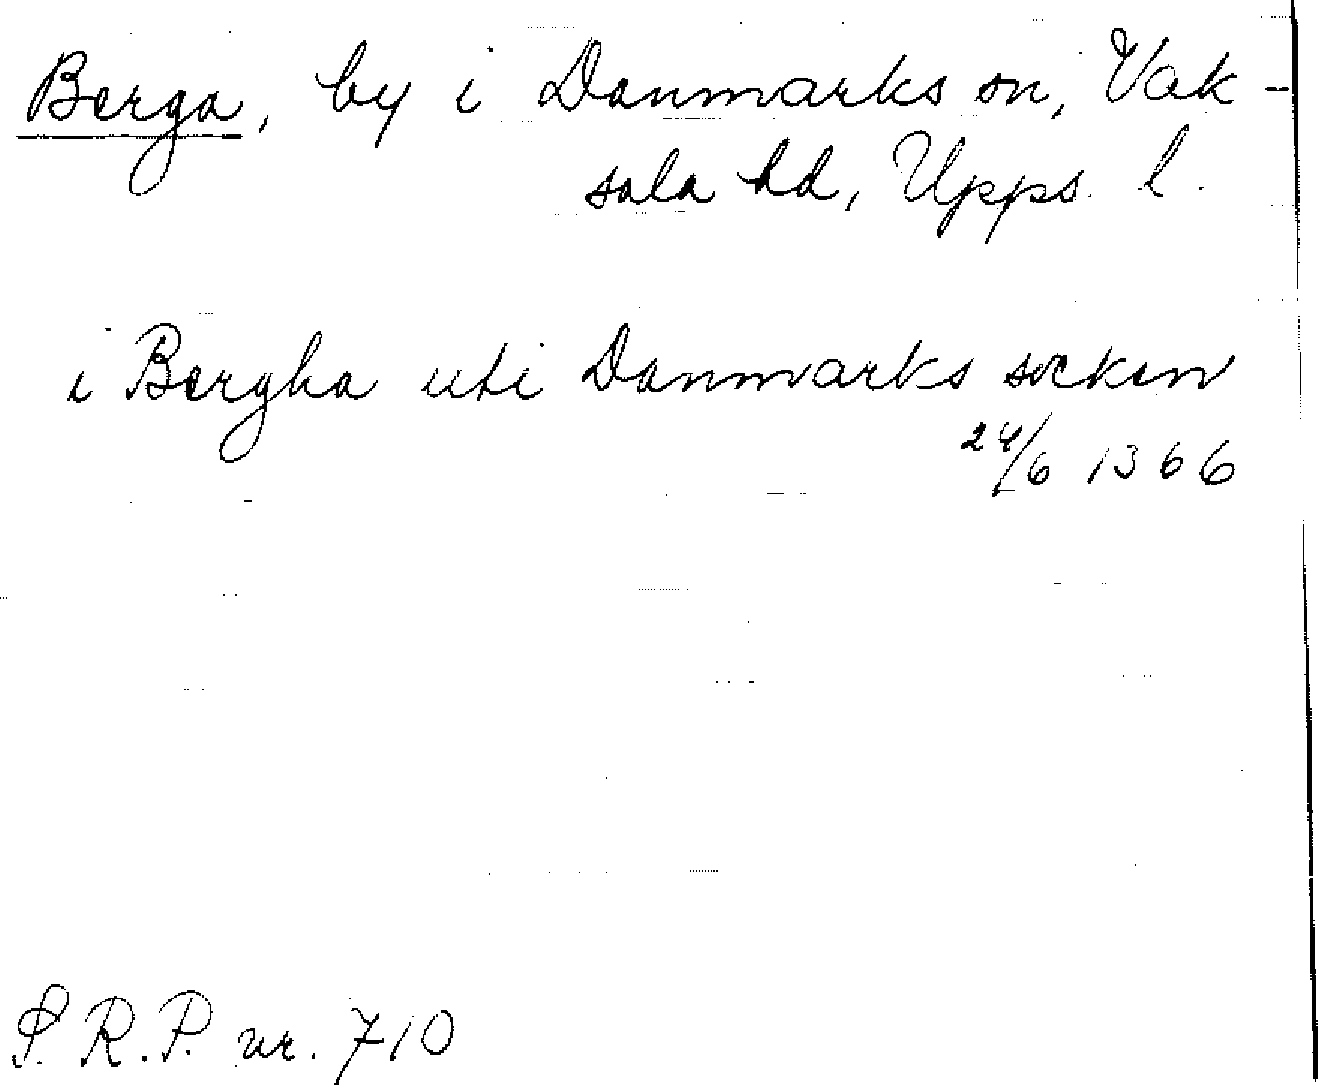 Berga, by i Danmarks sn, Vak-
sala hd, Upps. l.
i Bergha uti Danmarks sockin
24/6 1366
S.R.P. nr. 710